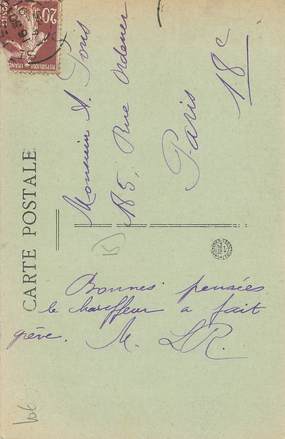 CARTE POSTALE
20c
Monsieur A. Joris
185, Rue Ordener
Paris
18e
Bonnes pensées
le chauffeur a fait
grève. M. LR.